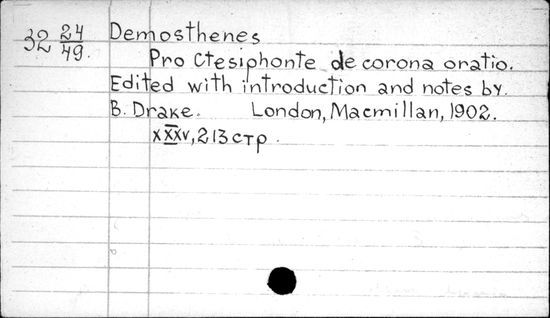 32 24/49. Demosthenes
Pro Ctesiphonte de corona oratio.
Edited with introduction and notes by.
B. Drake. London, Macmillan, 1902.
xxxv, 213 стр.